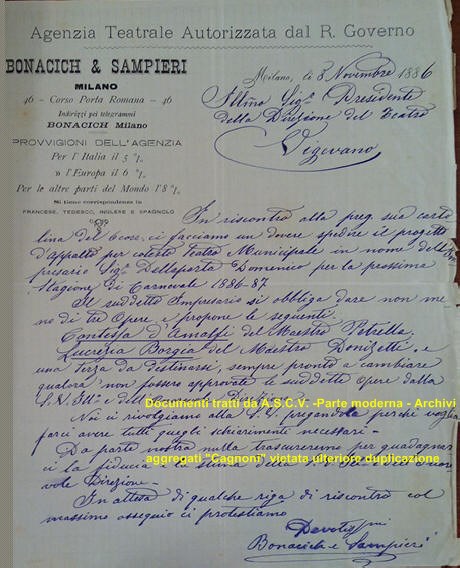 Agenzia Teatrale Autorizzata dal R. Governo
BONACICH & SAMPIERI
MILANO
46 - Corso Porta Romana - 46
Indirizzi pei telegrammi
BONACICH Milano
PROVVIGIONI DELL'AGENZIA
Per l'Italia il 5 %.
» l'Europa il 6 %.
Per le altre parti del Mondo l'8 %.
Si tiene corrispondenza in
FRANCESE, TEDESCO, INGLESE E SPAGNOLO
Milano, li 8 Novembre 1886
Ill.mo Sig.r Presidente
della Direzione del Teatro
Vigevano
In riscontro alla preg. sua carto
lina del ci facciamo un dovere spedire il progetto
d'appalto per cotesto Teatro Municipale in nome dell'Im
presario Sig.r Dellaporta Domenico per la prossima
Stagione di Carnevale 1886-87
Il suddetto Impresario si obbliga dare non me
no di tre Opere, e propone le seguenti.
Contessa d'Amalfi del Maestro Petrella.
Lucrezia Borgia del Maestro Donizetti, e
una terza da destinarsi, sempre pronto a cambiare
qualora non fossero approvate le suddette Opere dalla
S.V. Ill. e
Documenti tratti da A.S.C.V. -Parte moderna - Archivi
Noi ci rivolgiamo alla S.V. pregandola perchè voglia
farci avere tutti quegli schiarimenti necessari -
Da parte nostra nulla trascureremo per guadagnar
ci la fiducia e la stima della
aggregati "Cagnoni" vietata ulteriore duplicazione
vole Direzione -
In attesa di qualche riga di riscontro col
massimo ossequio ci protestiamo
Devotissmi
Bonacich e Sampieri